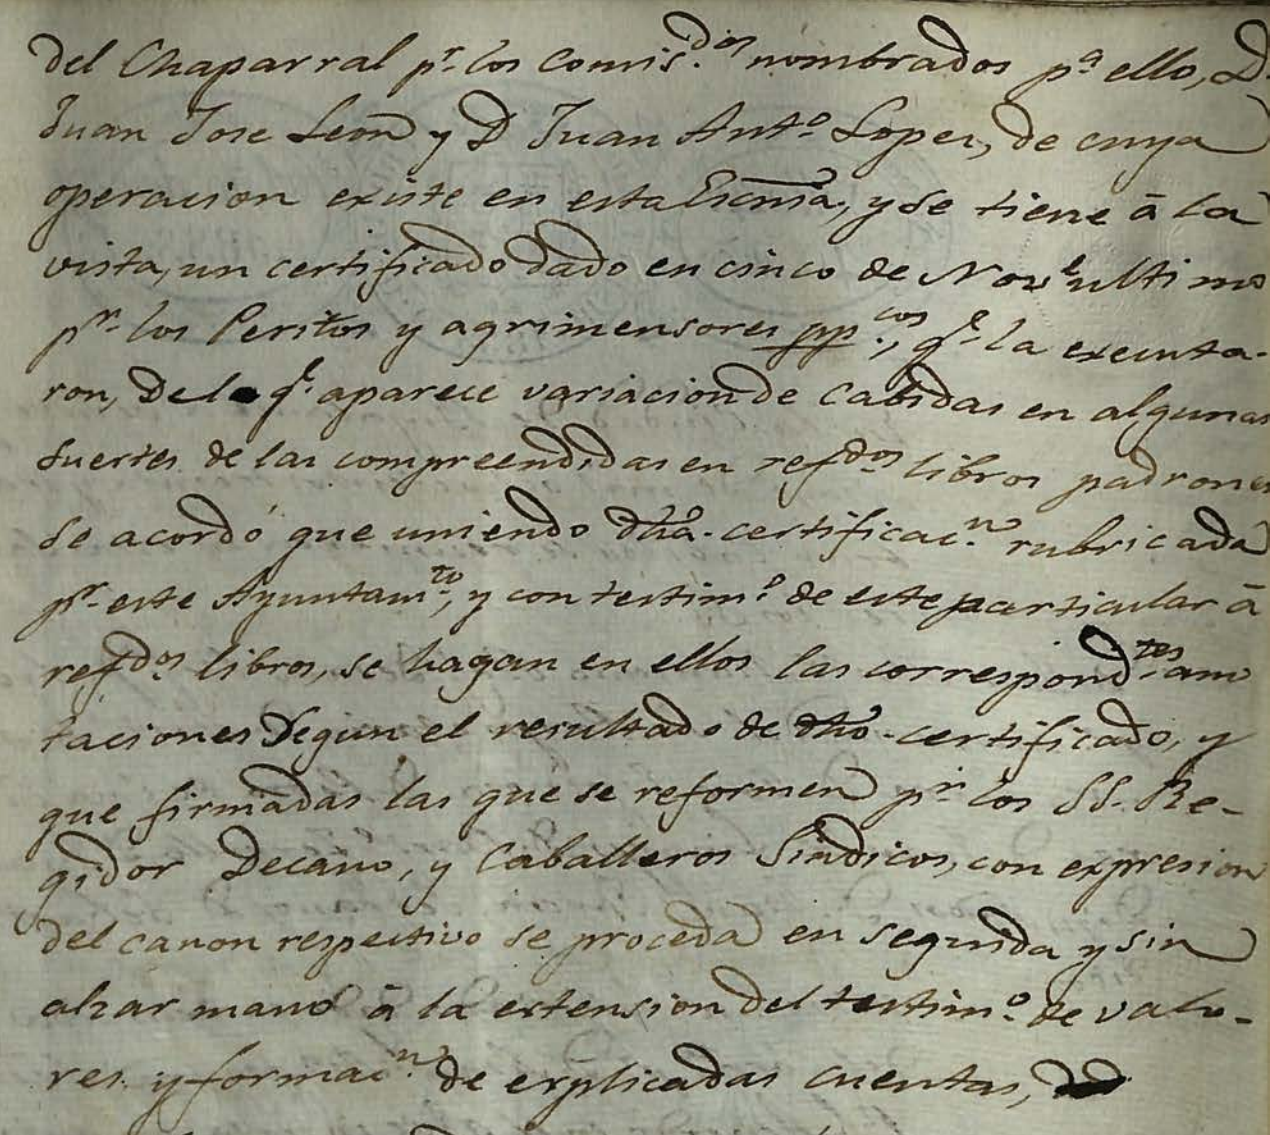 del Chaparral pr. los comis.dos nombrados pa. ello, D.
Juan Jose Leon y D Juan Anto. Lopez, de cuya
operacion existe en esta Escnia, y se tiene á la
vista, un certificado dado en cinco de Nove. ultimo
pr. los Peritos y agrimensores pp.cos, qe. la executa-
ron, de la qe. aparece variacion de cabidas en algunas
suertes de las compreendidas en refdos. libros padrones
se acordó que uniendo dha. certificacn. rubricada
pr. este Ayuntamto., y con testimo. de este particular á
refdos. libros, se hagan en ellos las correspondtes. ano
taciones segun el resultado de dho. certificado, y
que firmadas las que se reformen pr. los SS. Re-
gidor Decano, y Caballeros Sindicos, con expresion
del canon respectivo se proceda en seguida y sin
alzar mano á la extension del testimo. de valo-
res y formacn. de explicadas cuentas,